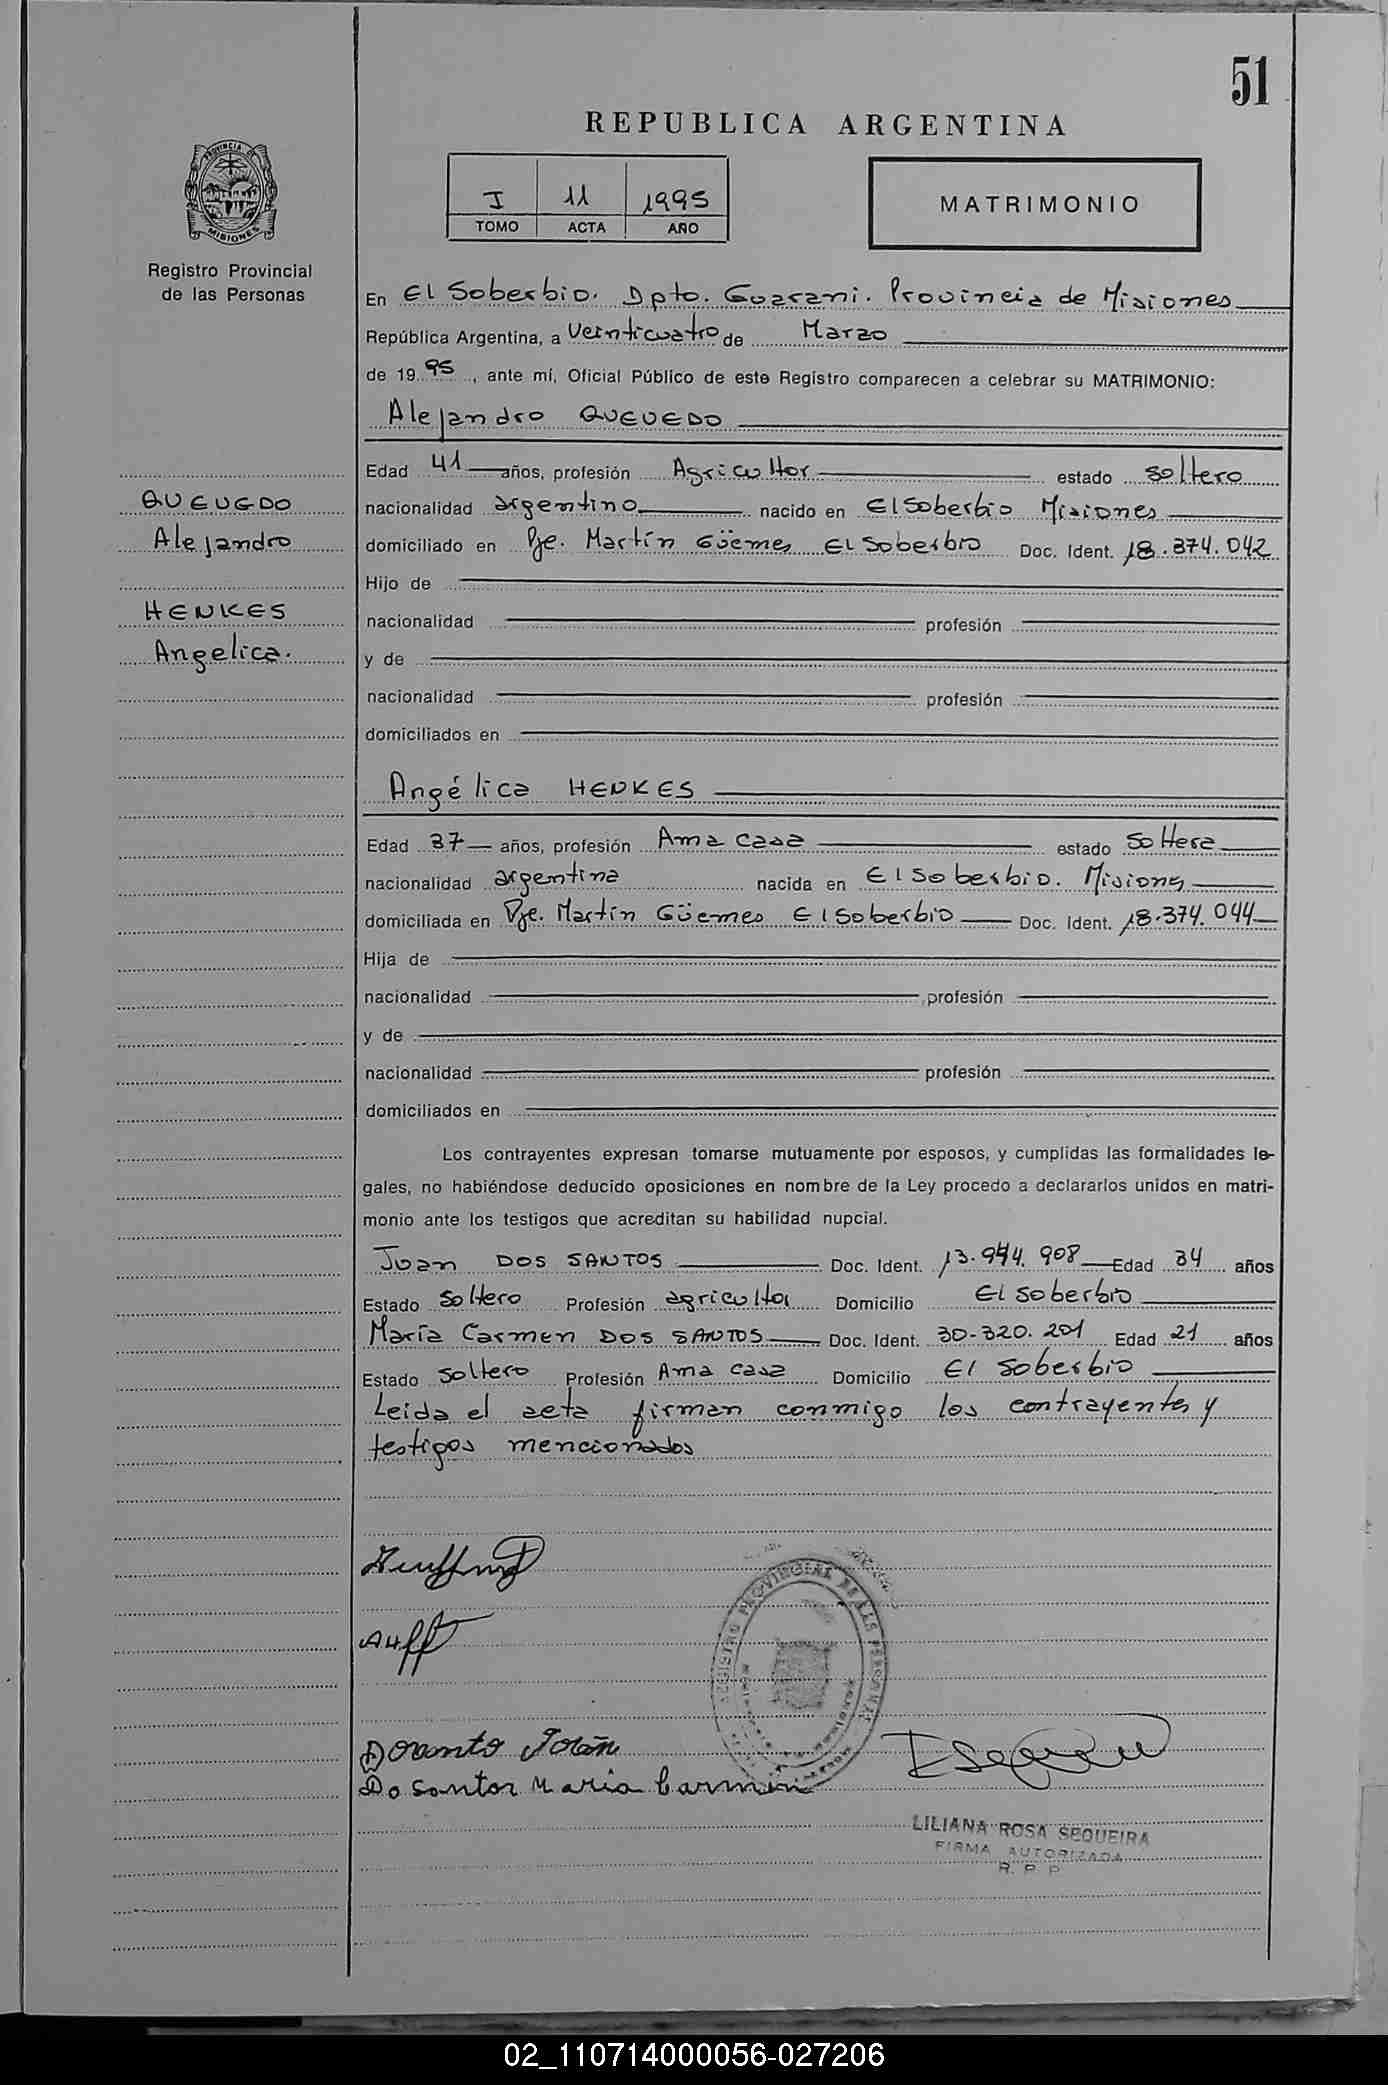 51
REPUBLICA ARGENTINA
I 11 1995
TOMO ACTA AÑO
MATRIMONIO
PROVINCIA DE
MISIONES
Registro Provincial
de las Personas
En El Soberbio. Dpto. Guarani. Provincia de Misiones
República Argentina, a Veinticuatro de Marzo
de 1995, ante mí, Oficial Público de este Registro comparecen a celebrar su MATRIMONIO:
Alejandro QUEVEDO
Edad 41 años, profesión Agricultor estado soltero
nacionalidad argentino nacido en El Soberbio Misiones
domiciliado en Pje. Martín Güemes El Soberbio Doc. Ident. 18.374.042
Hijo de
nacionalidad profesión
y de
nacionalidad profesión
domiciliados en
QUEVEDO
Alejandro
HENKES
Angelica.
Angélica HENKES
Edad 37 años, profesión Ama casa estado Soltera
nacionalidad argentina nacida en El Soberbio. Misiones
domiciliada en Pje. Martín Güemes El Soberbio Doc. Ident. 18.374.044
Hija de
nacionalidad profesión
y de
nacionalidad profesión
domiciliados en
Los contrayentes expresan tomarse mutuamente por esposos, y cumplidas las formalidades le-
gales, no habiéndose deducido oposiciones en nombre de la Ley procedo a declararlos unidos en matri-
monio ante los testigos que acreditan su habilidad nupcial.
Juan DOS SANTOS Doc. Ident. 13.944.908 Edad 34 años
Estado Soltero Profesión agricultor Domicilio El Soberbio
María Carmen DOS SANTOS Doc. Ident. 30-320.201 Edad 21 años
Estado Soltero Profesión Ama casa Domicilio El Soberbio
Leida el acta firman conmigo los contrayentes y
testigos mencionados
REGISTRO PROVINCIAL DE LAS PERSONAS
Do santos Maria Carmen
LILIANA ROSA SEQUEIRA
FIRMA AUTORIZADA
R. P. P
02_110714000056-027206